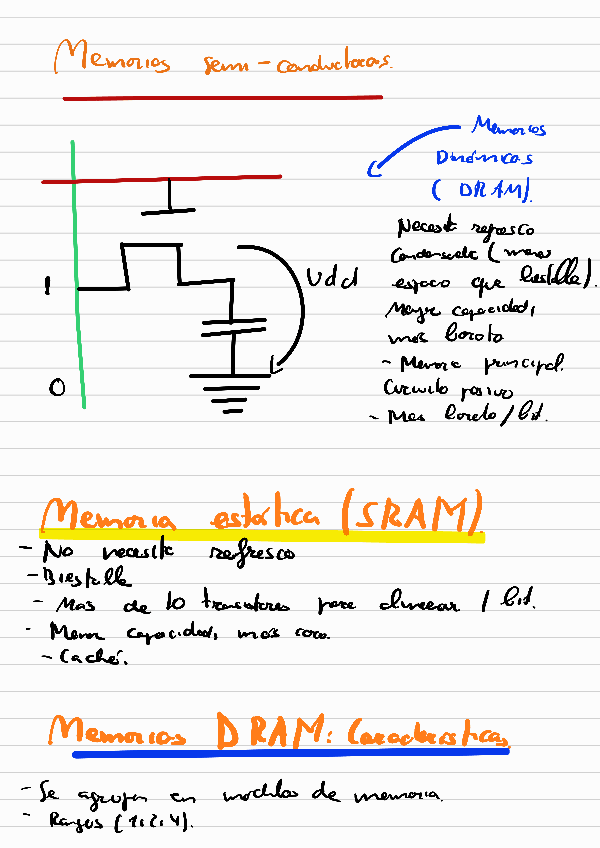 Memorias semi-conductoras.
Memorias
Dinámicas
(DRAM)
Necesita refresco
Condensador (menor
espacio que biestable).
Mayor capacidad,
más barata
- Memoria principal.
Circuito pasivo
- Mas barato/bit.
1
Vdd
0
Memoria estática (SRAM)
- No necesita refresco
- Biestable
- Mas de 10 transistores para almacenar 1 bit.
- Menor capacidad, más cara.
- Caché.
Memorias DRAM: Características
- Se agrupan en modulos de memoria.
- Rangos (1, 2, 4).